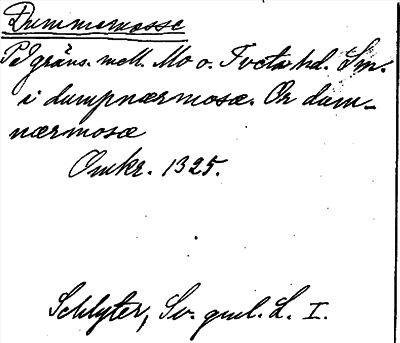 Dummemosse
På gräns. mell. Mo o. Tveta hd. Sm.
i dumpnærmosæ. Or dam-
nærmosæ
Omkr. 1325.
Schlyter, Sv. gml. L. I.